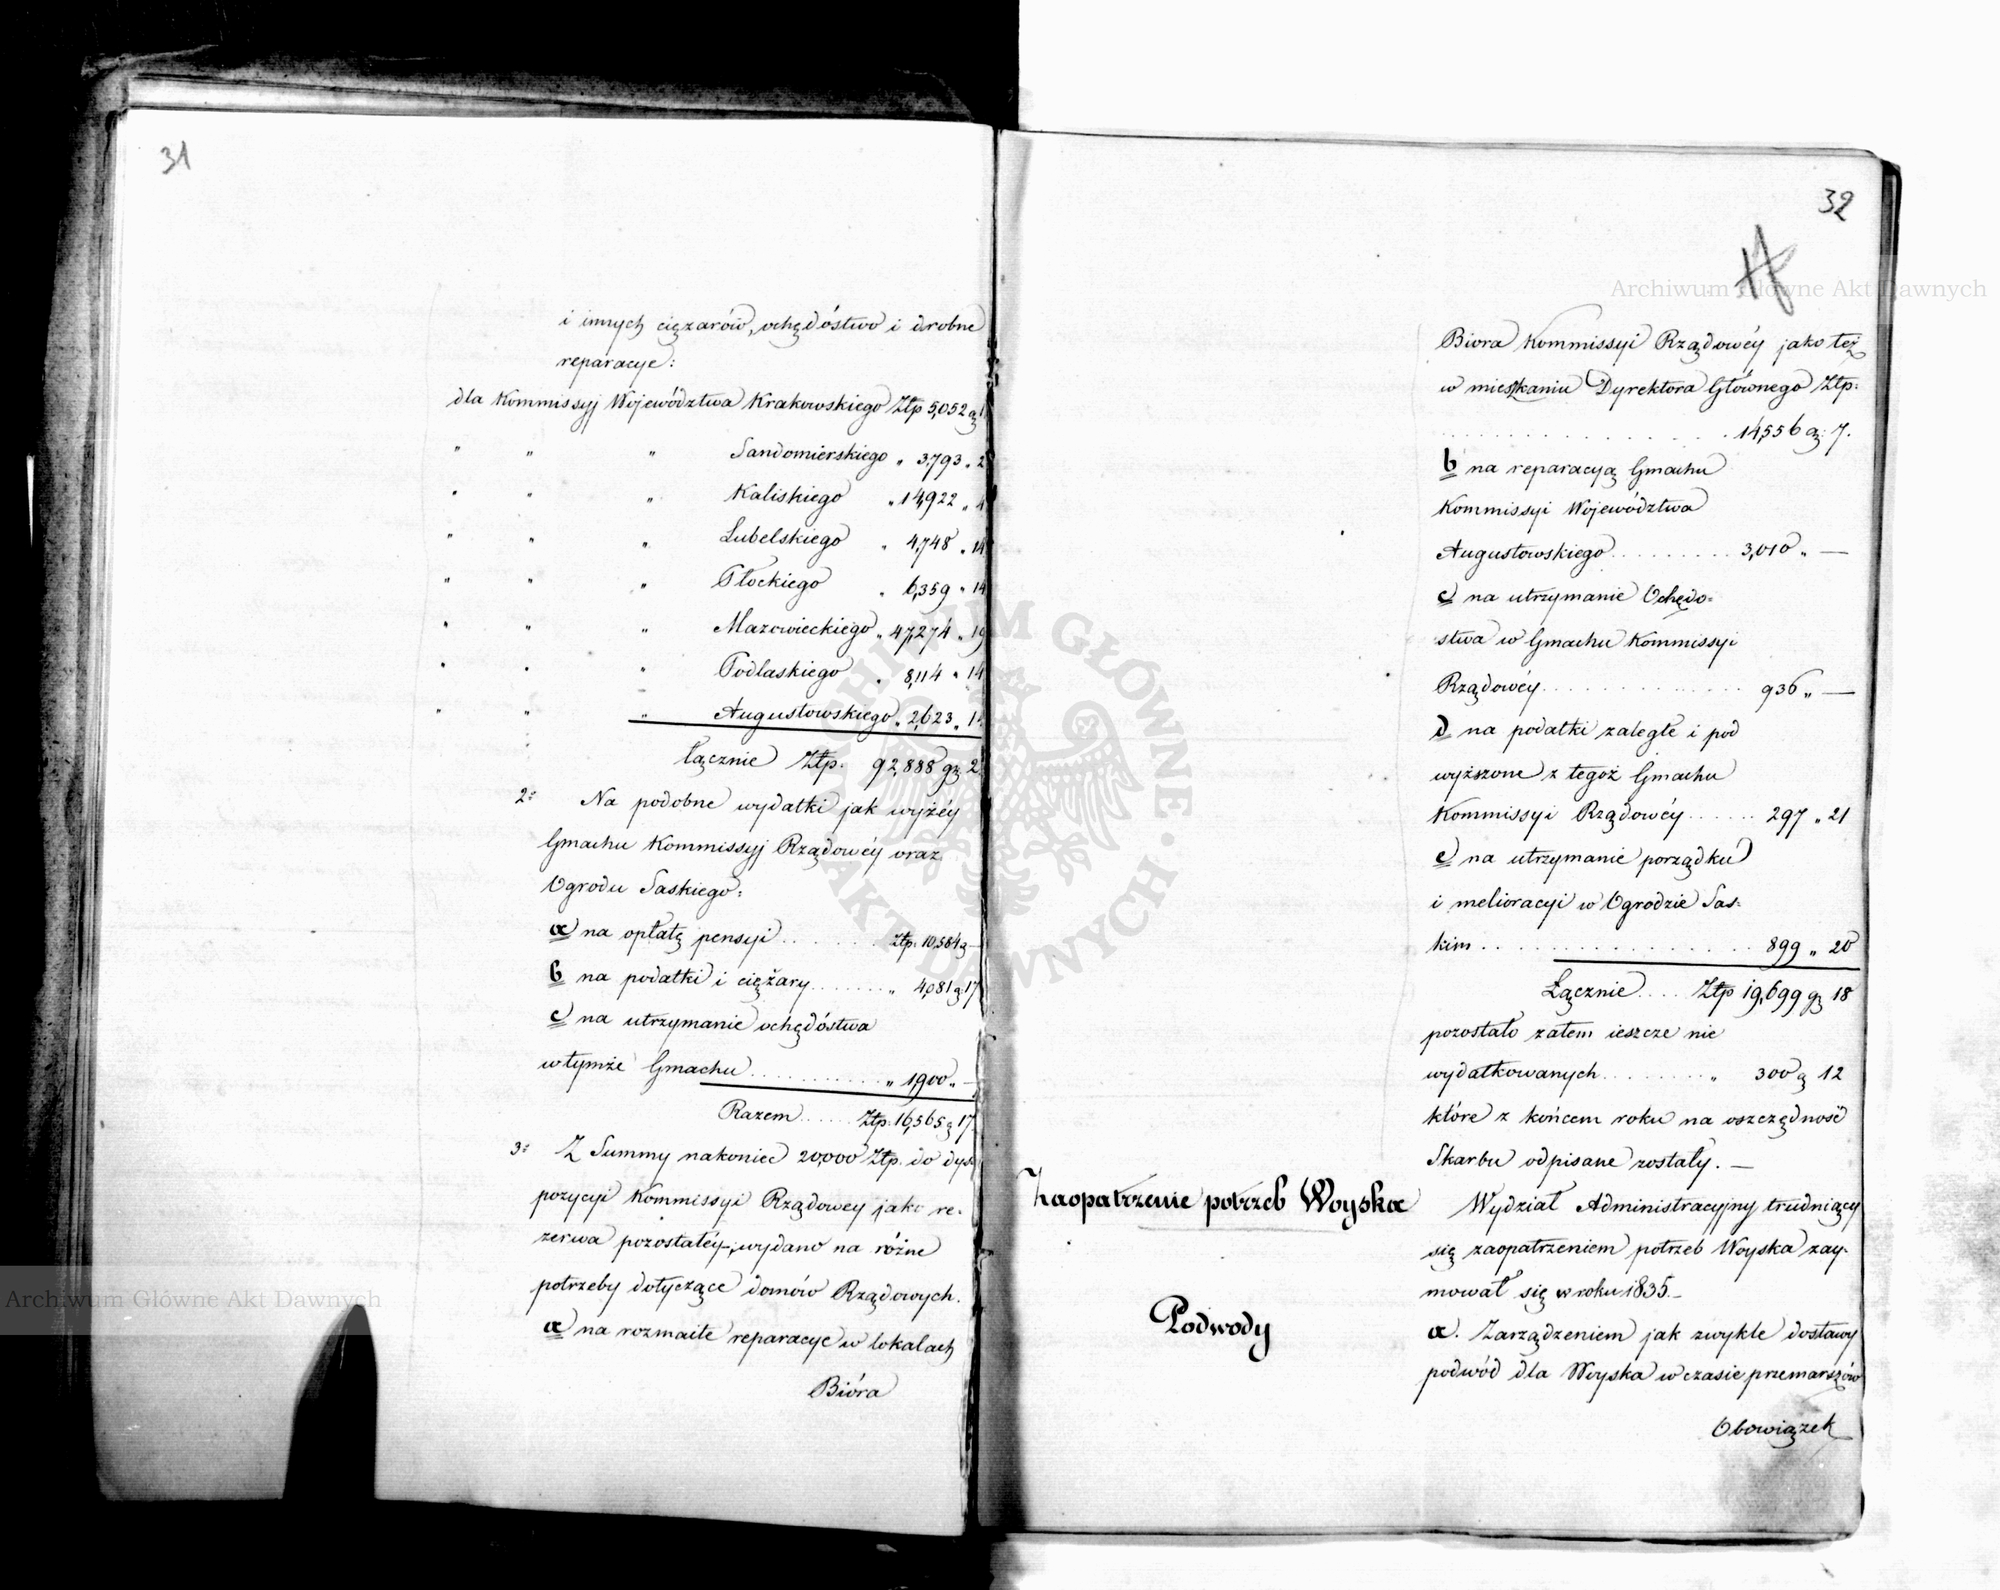 31
i innych ciężarów, ochędóstwo i drobne
reparacye:
dla Kommissyj Województwa Krakowskiego Złp 5,052 g
" " " Sandomierskiego " 3,793 " 2
" " " Kaliskiego " 14,922 " 4
" " " Lubelskiego " 4,748 " 14
" " " Płockiego " 6,359 " 14
" " " Mazowieckiego " 47,274 " 19
" " " Podlaskiego " 8,114 " 14
" " " Augustowskiego " 2,623 " 1
łącznie Złp. 92,888 gr 2
2º Na podobne wydatki jak wyżéy
Gmachu Kommissyj Rządowéy oraz
Ogrodu Saskiego:
a) na opłatę pensyi . . . . . . . Złp. 10,584 g —
b na podatki i ciężary . . . . . . . " 4,081 g 17
c) na utrzymanie ochędóstwa
w tymże Gmachu . . . . . . . . . . . " 1900 " —
Razem . . . . . Złp. 16,565 g 17
3º Z Summy nakoniec 20,000 Złp. do dys
pozycyi Kommissyi Rządowey jako re-
zerwa pozostałéy, wydano na różne
potrzeby dotyczące domów Rządowych.
a) na rozmaite reparacye w lokalach
Bióra
32
Biora Kommissyi Rządowéy jako też
w mieszkaniu Dyrektora Głównego Złp:
. . . . . . . . . . . . . . . . 14,556 g: 7.
b na reparacyą Gmachu
Kommissyi Województwa
Augustowskiego . . . . . . . . . 3,010 " —
c) na utrzymanie Ochędo=
stwa w Gmachu Kommissyi
Rządowéy . . . . . . . . . . . . . . . 936 " —
d na podatki zaległe i pod
wyższone z tegoż Gmachu
Kommissyi Rządowéy . . . . . . 297 " 21
e) na utrzymanie porządku
i melioracyi w Ogrodzie Sas=
kim . . . . . . . . . . . . . . . . . . 899 " 20
Łącznie . . . . Złp 19,699 gr 18
pozostało zatem ieszcze nie
wydatkowanych . . . . . . . . " 300 g 12
które z końcem roku na oszczędność
Skarbu odpisane zostały. —
Zaopatrzenie potrzeb Woyska
Wydział Administracyjny trudniący
się zaopatrzeniem potrzeb Woyska zay-
mował się w roku 1835. —
Podwody
a. Zarządzeniem jak zwykle dostawy
podwód dla Woyska w czasie przemarszów
Obowiązek
Archiwum Główne Akt Dawnych
Archiwum Główne Akt Dawnych
ARCHIWUM GŁÓWNE AKT DAWNYCH